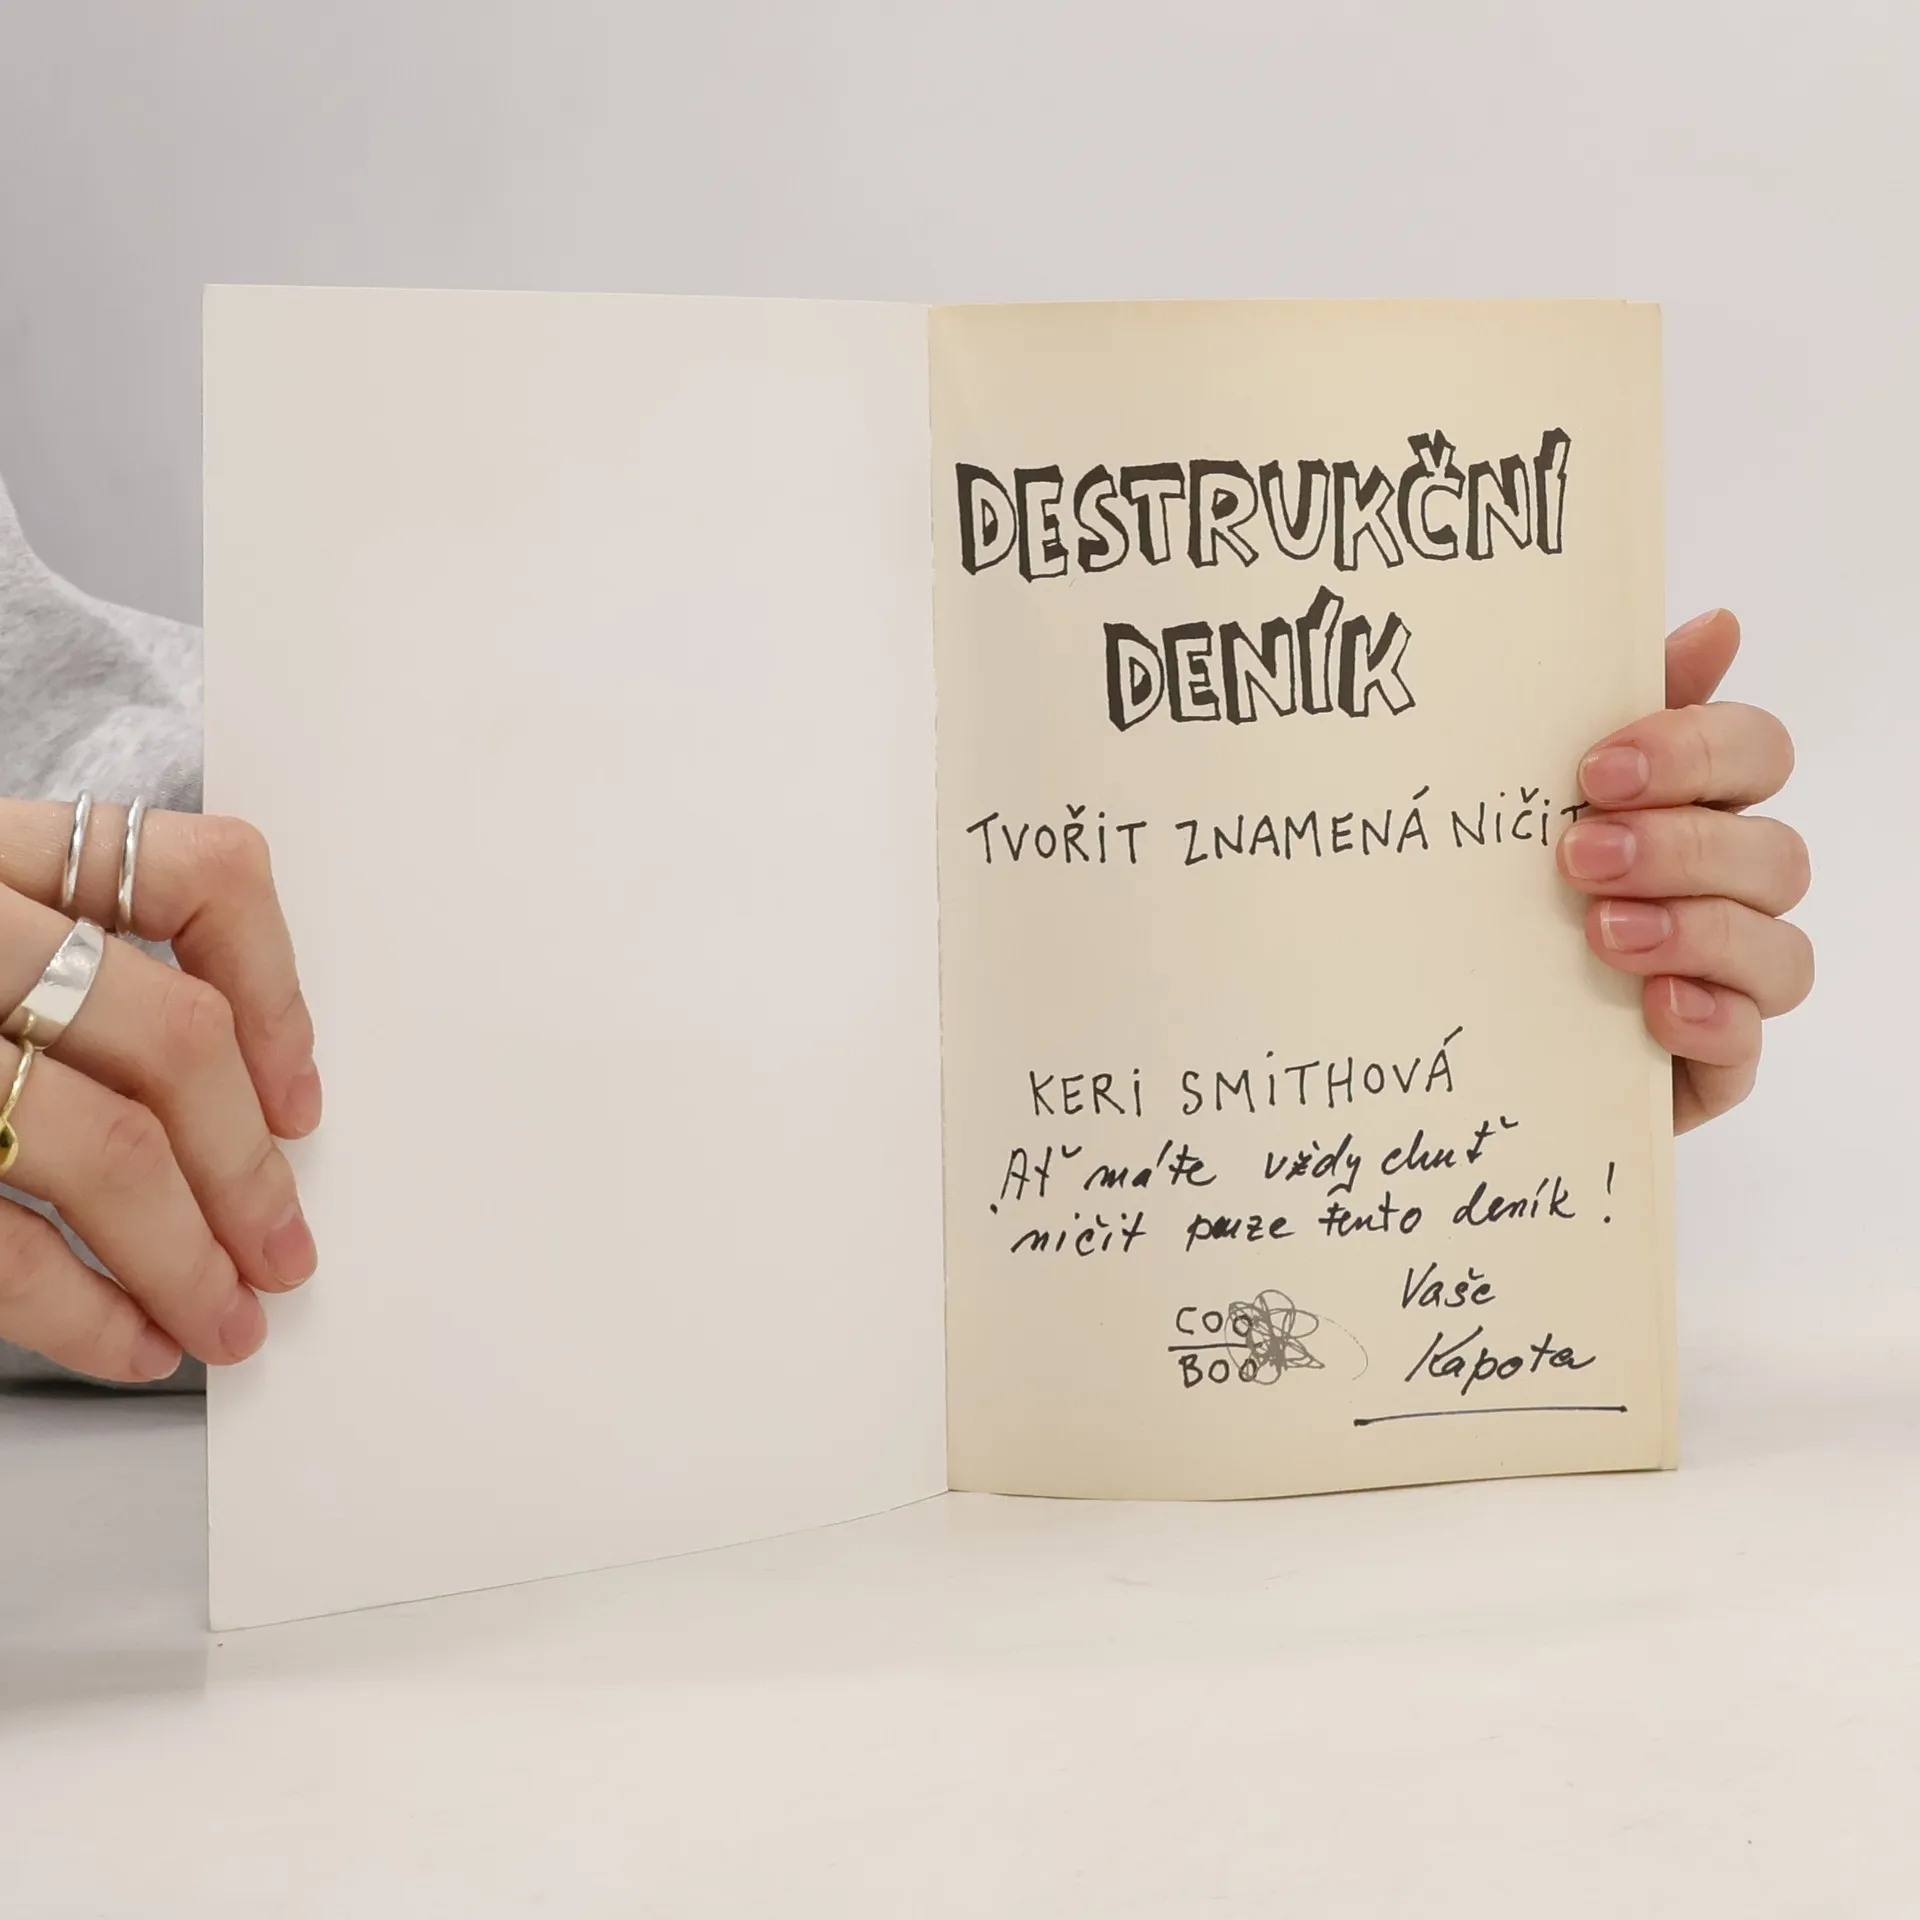 DESTRUKČNÍ
DENÍK
TVOŘIT ZNAMENÁ NIČIT
KERI SMITHOVÁ
Ať máte vždy chuť
ničit pouze tento deník!
Vaše
Kapota
COO
BOO